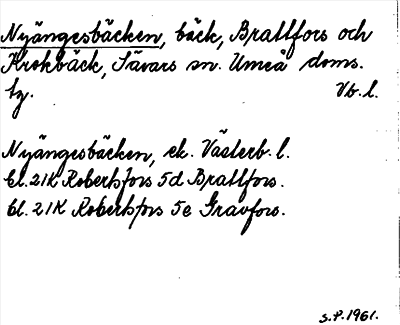 Nyängesbäcken, bäck, Brattfors och
Krokbäck, Sävars sn. Umeå doms.
tg. Vb. l.
Nyängesbäcken, ek. Västerb. l.
bl. 21K Robertsfors 5d Brattfors.
bl. 21K Robertsfors 5e Gravfors.
S.P. 1961.